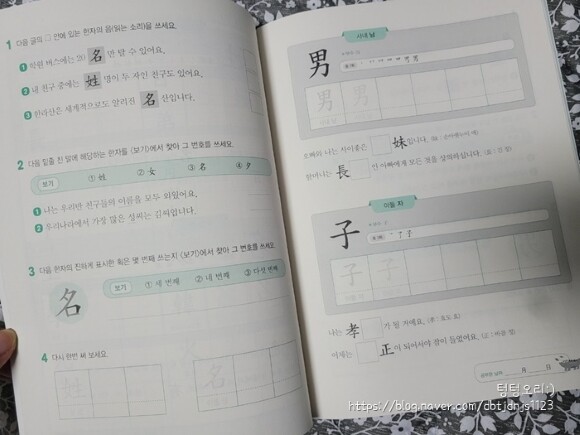 1 다음 글의 □ 안에 있는 한자의 음(읽는 소리)을 쓰세요.
❶ 학원 버스에는 20 名 만 탈 수 있어요.
❷ 내 친구 중에는 姓 명이 두 자인 친구도 있어요.
❸ 한라산은 세계적으로도 알려진 名 산입니다.
2 다음 밑줄 친 말에 해당하는 한자를 <보기>에서 찾아 그 번호를 쓰세요.
보기 ① 姓 ② 女 ③ 名 ④ 夕
❶ 나는 우리반 친구들의 이름을 모두 외웠어요.
❷ 우리나라에서 가장 많은 성씨는 김씨입니다.
3 다음 한자의 진하게 표시한 획은 몇 번째 쓰는지 <보기>에서 찾아 그 번호를 쓰세요.
名 보기 ① 세 번째 ② 네 번째 ③ 다섯 번째
4 다시 한번 써 보세요.
姓 名
사내 남
男
男 男
오빠와 나는 사이좋은 妹 입니다.
長 인 아빠에게 모든 것을 상의하십니다.
아들 자
子
子 子
나는 孝 가 될 거예요. (孝: 효도 효)
이제는 正 이 되어서야 잠이 들었어요.
공부한 날짜 월 일
팅팅오리:)
https://blog.naver.com/dbtjdnjs1123